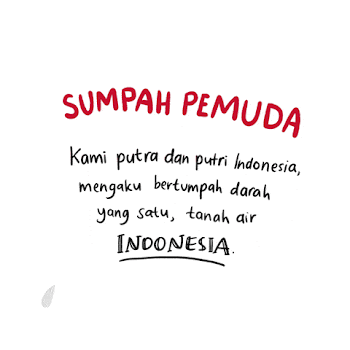 SUMPAH PEMUDA
Kami putra dan putri Indonesia,
mengaku bertumpah darah
yang satu, tanah air
INDONESIA.